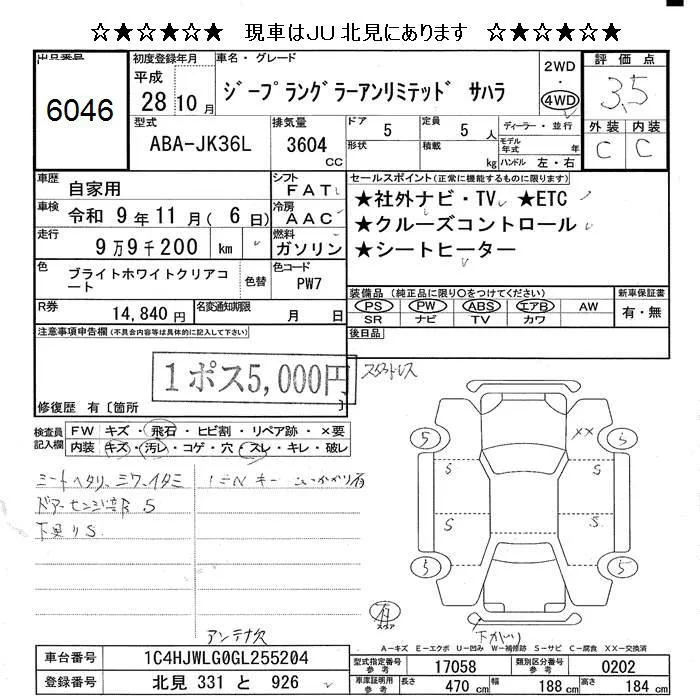 ☆★☆★☆★ 現車はJU北見にあります ☆★☆★☆★
出品番号
6046
初度登録年月
平成
28 10 月
車名・グレード
ジープラングラーアンリミテッド サハラ
2WD
・
4WD
評価点
3.5
外装 内装
C C
型式
ABA-JK36L
排気量
3604
CC
ドア 5
形状
定員 5 人
積載 kg
ディーラー・並行
モデル年式 年
ハンドル 左・右
車歴 自家用
シフト FAT
車検 令和 9 年 11 月 ( 6 日)
冷房 AAC
走行 9万9千200 km
燃料 ガソリン
色 ブライトホワイトクリアコート
色替
色コード PW7
R券 14,840 円
名変通知期限 月 日
セールスポイント(正常に機能するものに限ります)
★社外ナビ・TV ★ETC
★クルーズコントロール
★シートヒーター
装備品 (純正品に限り〇をつけてください)
新車保証書
PS PW ABS エアB AW
SR ナビ TV カワ
有・無
後日品
注意事項申告欄(不具合内容等は具体的に記入して下さい)
1ポス5,000円
スタッドレス
修復歴 有〔箇所 〕
検査員記入欄
FW キズ・飛石・ヒビ割・リペア跡・×要
内装 キズ・汚レ・コゲ・穴・スレ・キレ・破レ
シートヘタリ、シワ、イタミ
ドアーセンジ部 S
下廻りS
5 5
×× S S S S
5 5
有
スペア
下カバリ
アンテナ欠
A=キズ E=エクボ U=凹み W=補修跡 S=サビ C=腐食 XX=交換済
車台番号 1C4HJWLG0GL255204
登録番号 北見 331 と 926
型式指定番号 参考 17058
類別区分番号 参考 0202
車庫証明用 参考 長さ 470 cm 幅 188 cm 高さ 184 cm